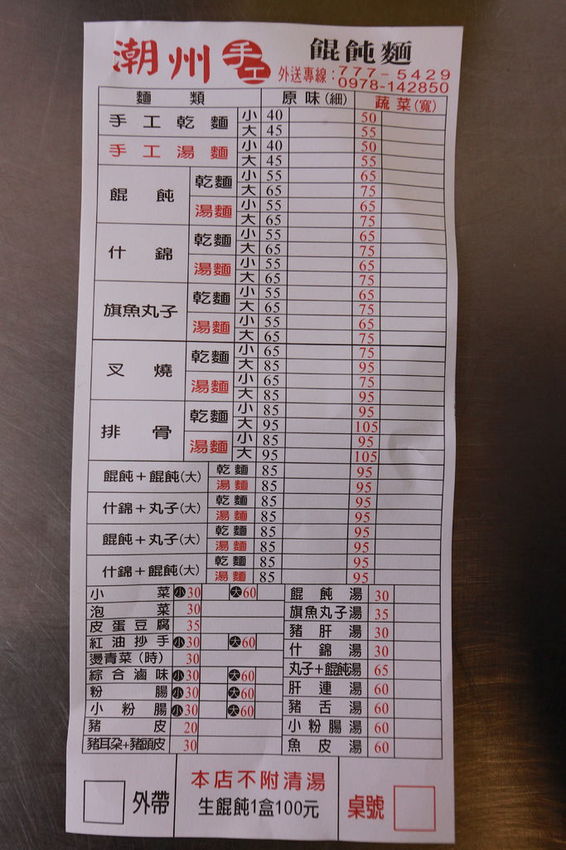 潮州手工 餛飩麵
外送專線：777-5429
0978-142850
麵類 原味(細) 蔬菜(寬)
手工乾麵 小 40 50
大 45 55
手工湯麵 小 40 50
大 45 55
餛飩 乾麵 小 55 65
大 65 75
湯麵 小 55 65
大 65 75
什錦 乾麵 小 55 65
大 65 75
湯麵 小 55 65
大 65 75
旗魚丸子 乾麵 小 55 65
大 65 75
湯麵 小 55 65
大 65 75
叉燒 乾麵 小 65 75
大 85 95
湯麵 小 65 75
大 85 95
排骨 乾麵 小 85 95
大 95 105
湯麵 小 85 95
大 95 105
餛飩+餛飩(大) 乾麵 85 95
湯麵 85 95
什錦+丸子(大) 乾麵 85 95
湯麵 85 95
餛飩+丸子(大) 乾麵 85 95
湯麵 85 95
什錦+餛飩(大) 乾麵 85 95
湯麵 85 95
小菜 小30 大60
泡菜 30
皮蛋豆腐 35
紅油抄手 小30 大60
燙青菜(時) 30
綜合滷味 小30 大60
粉腸 小30 大60
小粉腸 小30 大60
豬皮 20
豬耳朶+豬頭皮 30
餛飩湯 30
旗魚丸子湯 35
豬肝湯 30
什錦湯 30
丸子+餛飩湯 65
肝連湯 60
豬舌湯 60
小粉腸湯 60
魚皮湯 60
外帶
本店不附清湯
生餛飩1盒100元
桌號